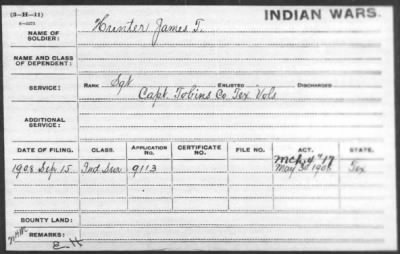 (3-H-11)
6-2573
INDIAN WARS.
NAME OF SOLDIER: Hunter James T.
NAME AND CLASS OF DEPENDENT:
SERVICE: RANK Sgt ENLISTED DISCHARGED
Capt. Tobins Co. Tex Vols
ADDITIONAL SERVICE:
DATE OF FILING. CLASS. APPLICATION NO. CERTIFICATE NO. FILE NO. ACT. STATE.
Mch. 4 " 17
1908 Sep. 15. Ind. Sur. 9113 May 30 1908 Tex
BOUNTY LAND:
REMARKS: